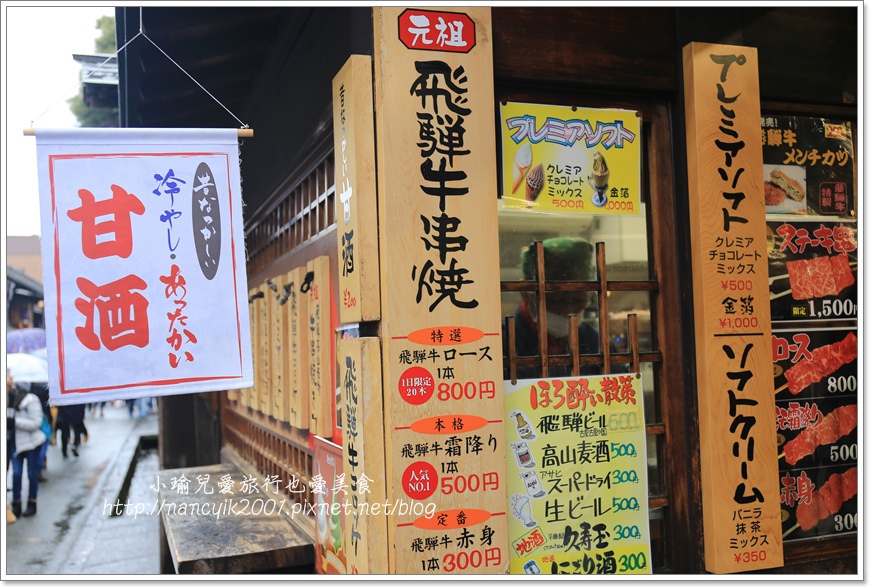 昔なつかしい
冷やし・あったかい
甘酒
甘酒
元祖
飛騨牛串焼
特選
飛騨牛ロース
1日限定
20本
1本
800円
本格
飛騨牛霜降り
人気
NO.1
1本
500円
定番
飛騨牛赤身
1本300円
飛騨牛
プレミアソフト
クレミア
チョコレート
ミックス
500円
金箔
1,000円
ほろ酔い散策
飛騨ビール
600円
高山麦酒500円
アサヒ
スーパードライ300円
生ビール500円
地酒
久寿玉300円
にごり酒300円
プレミアソフト
クレミア
チョコレート
ミックス
¥500
金箔
¥1,000
ソフトクリーム
バニラ
抹茶
ミックス
¥350
飛騨牛
メンチカツ
特製
飛騨牛
ステーキ串
限定
1,500円
ロース
800
霜降り
500
赤身
300
小瑜兒愛旅行也愛美食
http://nancyjk2007.pixnet.net/blog